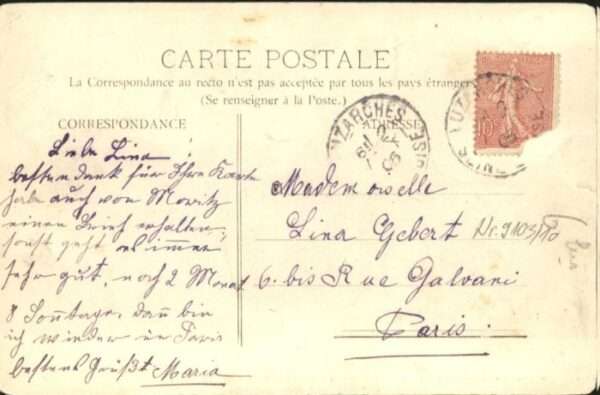 CARTE POSTALE
La Correspondance au recto n'est pas acceptée par tous les pays étrangers
(Se renseigner à la Poste.)
CORRESPONDANCE
ADRESSE
LUZARCHES
Liebe Lina
besten dank für Ihre Karte
hab auch von Moritz
einen Brief erhalten,
sonst geht es immer
sehr gut, noch 2 Monat
8 Sontage, dann bin
ich wieder in Paris
bestens grüßt
Maria
Mademoiselle
Lina Gebert
Nr. 9103/10
6. bis Rue Galvani
Paris.